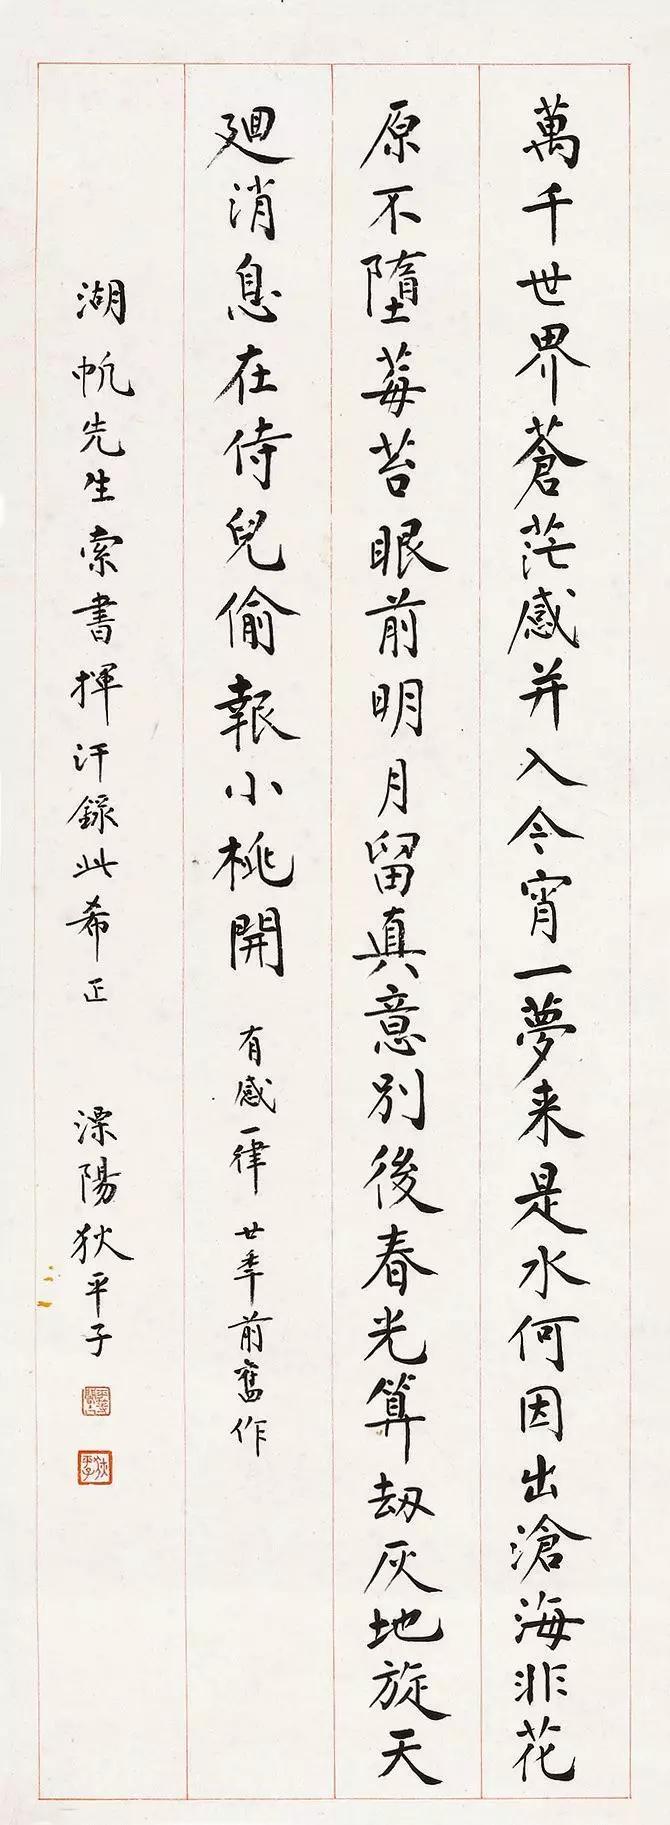 萬千世界蒼茫感并入今宵一夢来是水何因出滄海非花
原不墮莓苔眼前明月留真意別後春光算劫灰地旋天
廻消息在侍兒偷報小桃開 有感一律 廿年前舊作
湖帆先生索書揮汗錄此希正 溧陽狄平子